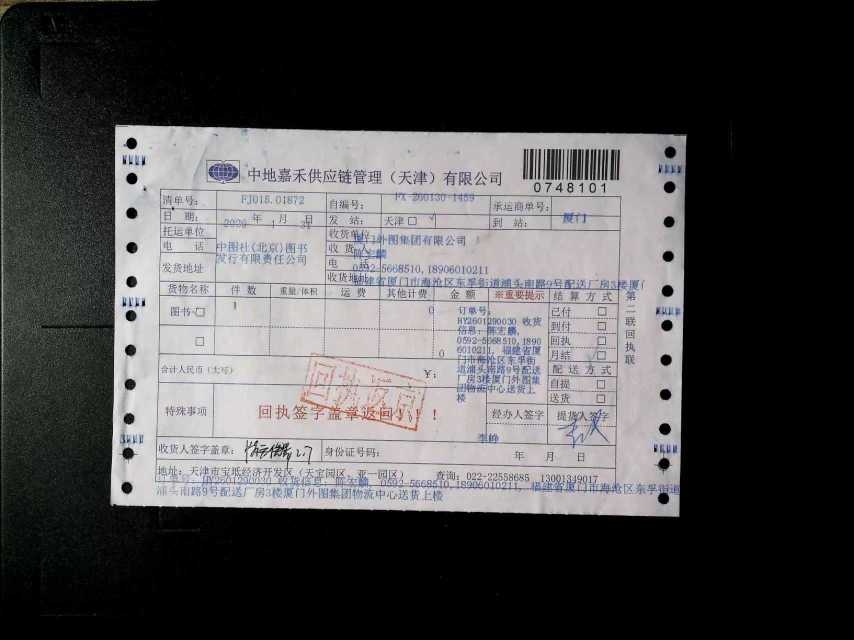 中地嘉禾供应链管理（天津）有限公司
0748101
清单号: FJ015.01872 自编号: FX-260130-1459 承运商单号:
日 期: 年 月 日 发 站: 天津□ √ 到 站: 厦门
托运单位 中图社(北京)图书发行有限责任公司 收货单位 厦门外图集团有限公司
电 话 收 货 人 陈宏麟
电 话 0592-5668510,18906010211
发货地址 收货地址 福建省厦门市海沧区东孚街道浦头南路9号配送厂房3楼厦门
货物名称 件 数 重量/体积 运 费 其他计费 金 额 ※重要提示 结 算 方 式
图书□ 1 0
□ 0
订单号:
HY2601290030 收货
信息: 陈宏麟,
0592-5668510,1890
6010211, 福建省厦
门市海沧区东孚街
道浦头南路9号配送
厂房3楼厦门外图集
团物流中心送货上
楼
已付 □
到付 □
回执 □
月结 □
配 送 方 式
自提 □
送货 □
第二联 回执联
合计人民币（大写） ￥:
特殊事项 回执签字盖章返回！！！
回执返回
经办人签字 提货人签字
李峥
收货人签字盖章: 身份证号码: 年 月 日
地址: 天津市宝坻经济开发区（天宝园区、亚一园区） 查询: 022-22558685 13001349017
订单号: HY2601290030 收货信息: 陈宏麟, 0592-5668510,18906010211, 福建省厦门市海沧区东孚街道
浦头南路9号配送厂房3楼厦门外图集团物流中心送货上楼